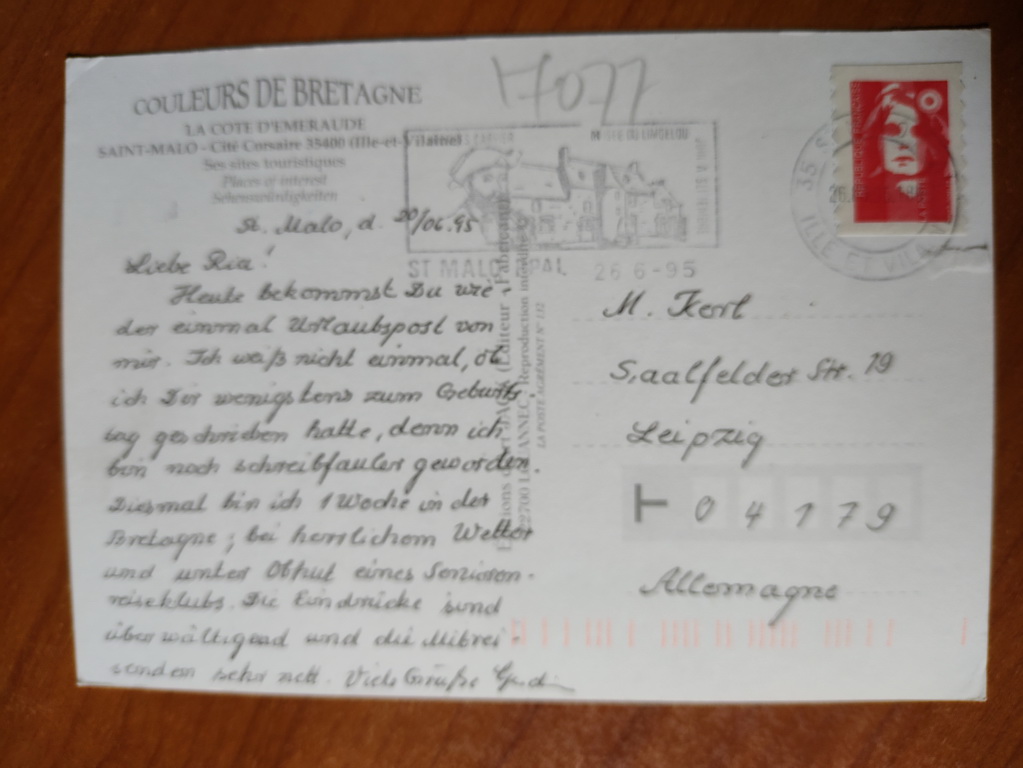 COULEURS DE BRETAGNE
LA COTE D'EMERAUDE
SAINT-MALO - Cité Corsaire 35400 (Ille-et-Vilaine)
Ses sites touristiques
Places of interest
Sehenswürdigkeiten
17077
ST MALO PAL 26 6-95
35
ILLE ET VILAINE
St. Malo, d. 20/06.95
Liebe Ria!
Heute bekommst Du wie
der einmal Urlaubspost von
mir. Ich weiß nicht einmal, ob
ich Dir wenigstens zum Geburts-
tag geschrieben hatte, denn ich
bin noch schreibfauler geworden.
Diesmal bin ich 1 Woche in der
Bretagne; bei herrlichem Wetter
und unter Obhut eines Senioren-
reiseklubs. Die Eindrücke sind
überwältigend und die Mitrei-
senden sehr nett. Viele Grüße
LA POSTE AGRÉMENT N° 112
M. Kerl
Saalfelder Str. 19
Leipzig
04179
Allemagne